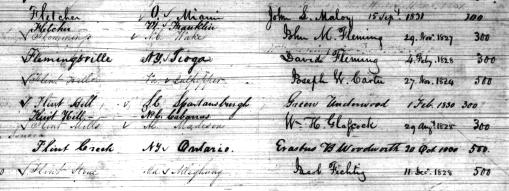 Fletcher v O. S Miami John S. Maloy 15 Sept. 1831 100
Fletcher Vt Franklin
v N.C. Wake John M. Fleming 29 Nov. 1827 300
Flemingsville N.Y. Tioga David Fleming 4 Feby. 1828 300
v Flint Hill Va Culpepper Joseph W. Carter 27 Nov. 1824 500
v Flint Hill, v S.C. Spartansburgh Green Underwood 1 Feb. 1830 300
Flint Hill N.C. Cabarras
v Flint Mills Madison Wm H. Glasscock 29 Augt. 1825 300
Flint Creek N.Y. Ontario. Erastus B Woodworth 20 Oct 500
v Flint Stone Md S Alleghany Jacob 11 Dec. 1828 500